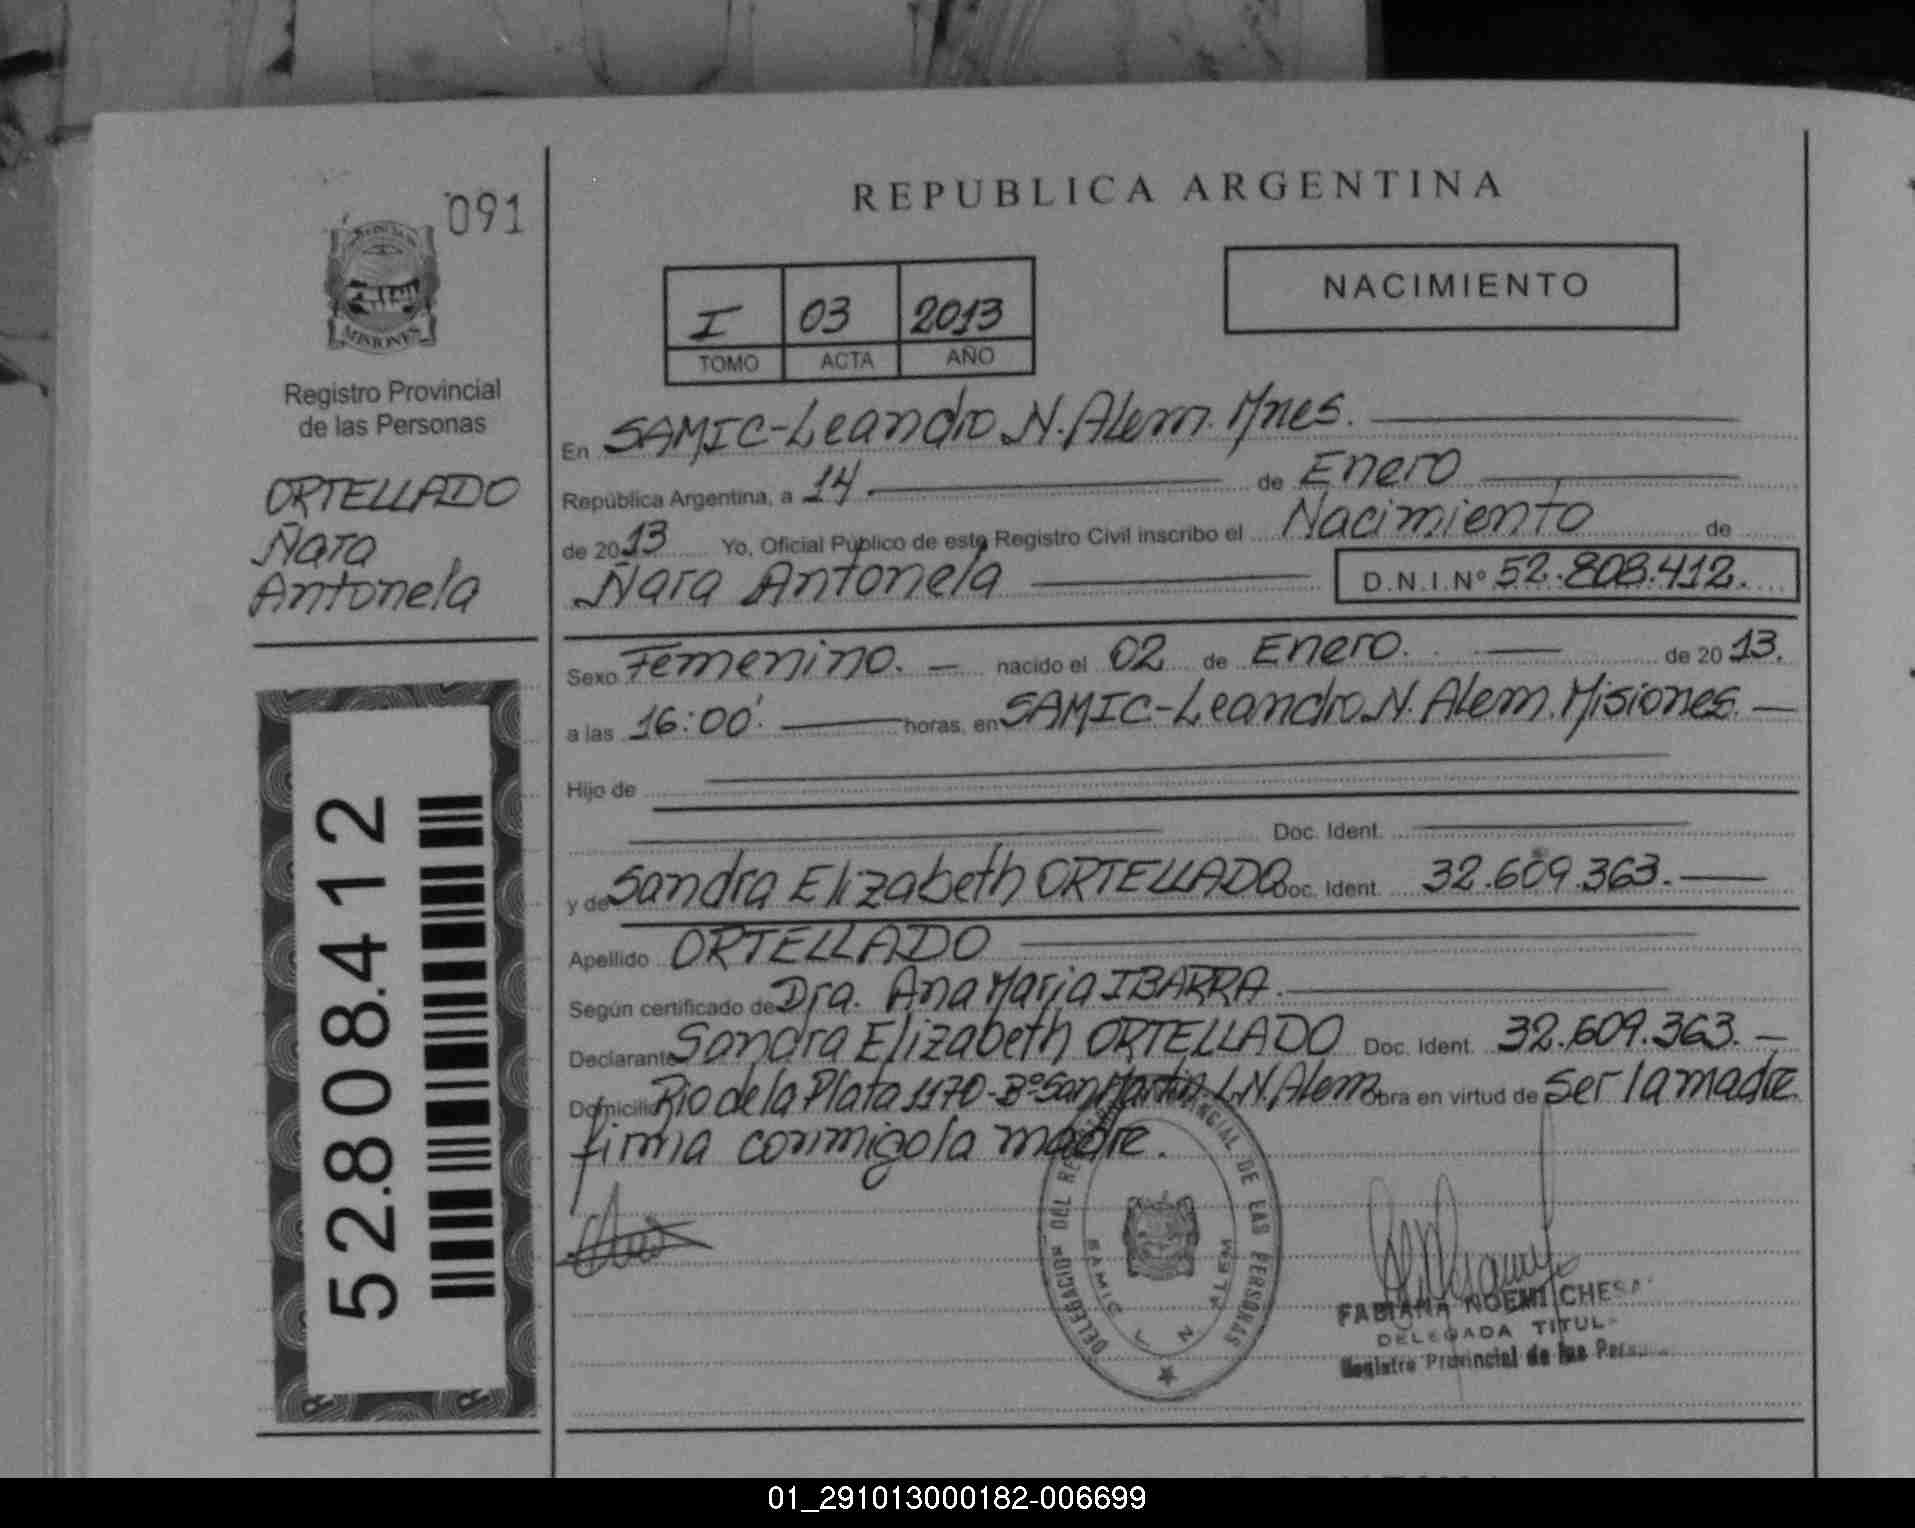 091
MISIONES
Registro Provincial
de las Personas
ORTELLADO
Ñara
Antonela
52.808.412
REPUBLICA ARGENTINA
I 03 2013
TOMO ACTA AÑO
NACIMIENTO
En SAMIC-Leandro N. Alem. Mnes.
República Argentina, a 14 de Enero
de 2013 Yo, Oficial Público de este Registro Civil inscribo el Nacimiento de
Ñara Antonela D.N.I.Nº 52.808.412.
Sexo Femenino. nacido el 02 de Enero. de 2013.
a las 16:00'. horas, en SAMIC-Leandro N. Alem. Misiones.
Hijo de
Doc. Ident.
y de Sandra Elizabeth ORTELLADO Doc. Ident. 32.609.363.
Apellido ORTELLADO
Según certificado de Dra. Ana Maria IBARRA.
Declarante Sandra Elizabeth ORTELLADO Doc. Ident. 32.609.363.
Domicilio Rio de la Plata 1170-Bº San Martin. L.N. Alem Obra en virtud de ser la madre.
firma conmigo la madre.
DELEGACION DEL REGISTRO PROVINCIAL DE LAS PERSONAS
SAMIC L N ALEM
FABIANA NOEMI
DELEGADA
Registro Provincial de las
01_291013000182-006699